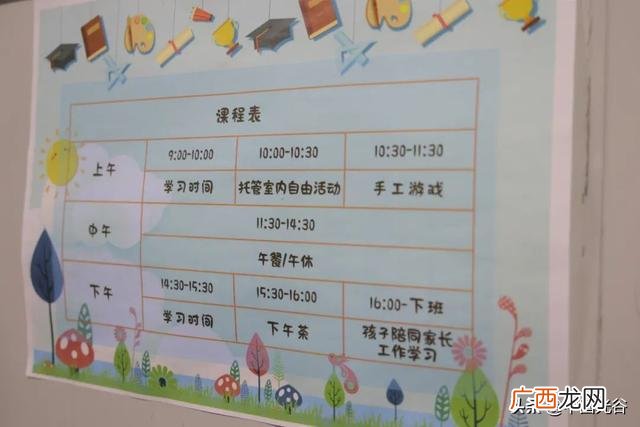 课程表
上午
9:00-10:00
10:00-10:30
10:30-11:30
学习时间
托管室内自由活动
手工游戏
中午
11:30-14:30
午餐/午休
下午
14:30-15:30
15:30-16:00
16:00-下班
学习时间
下午茶
孩子陪同家长
工作学习
广西龙网